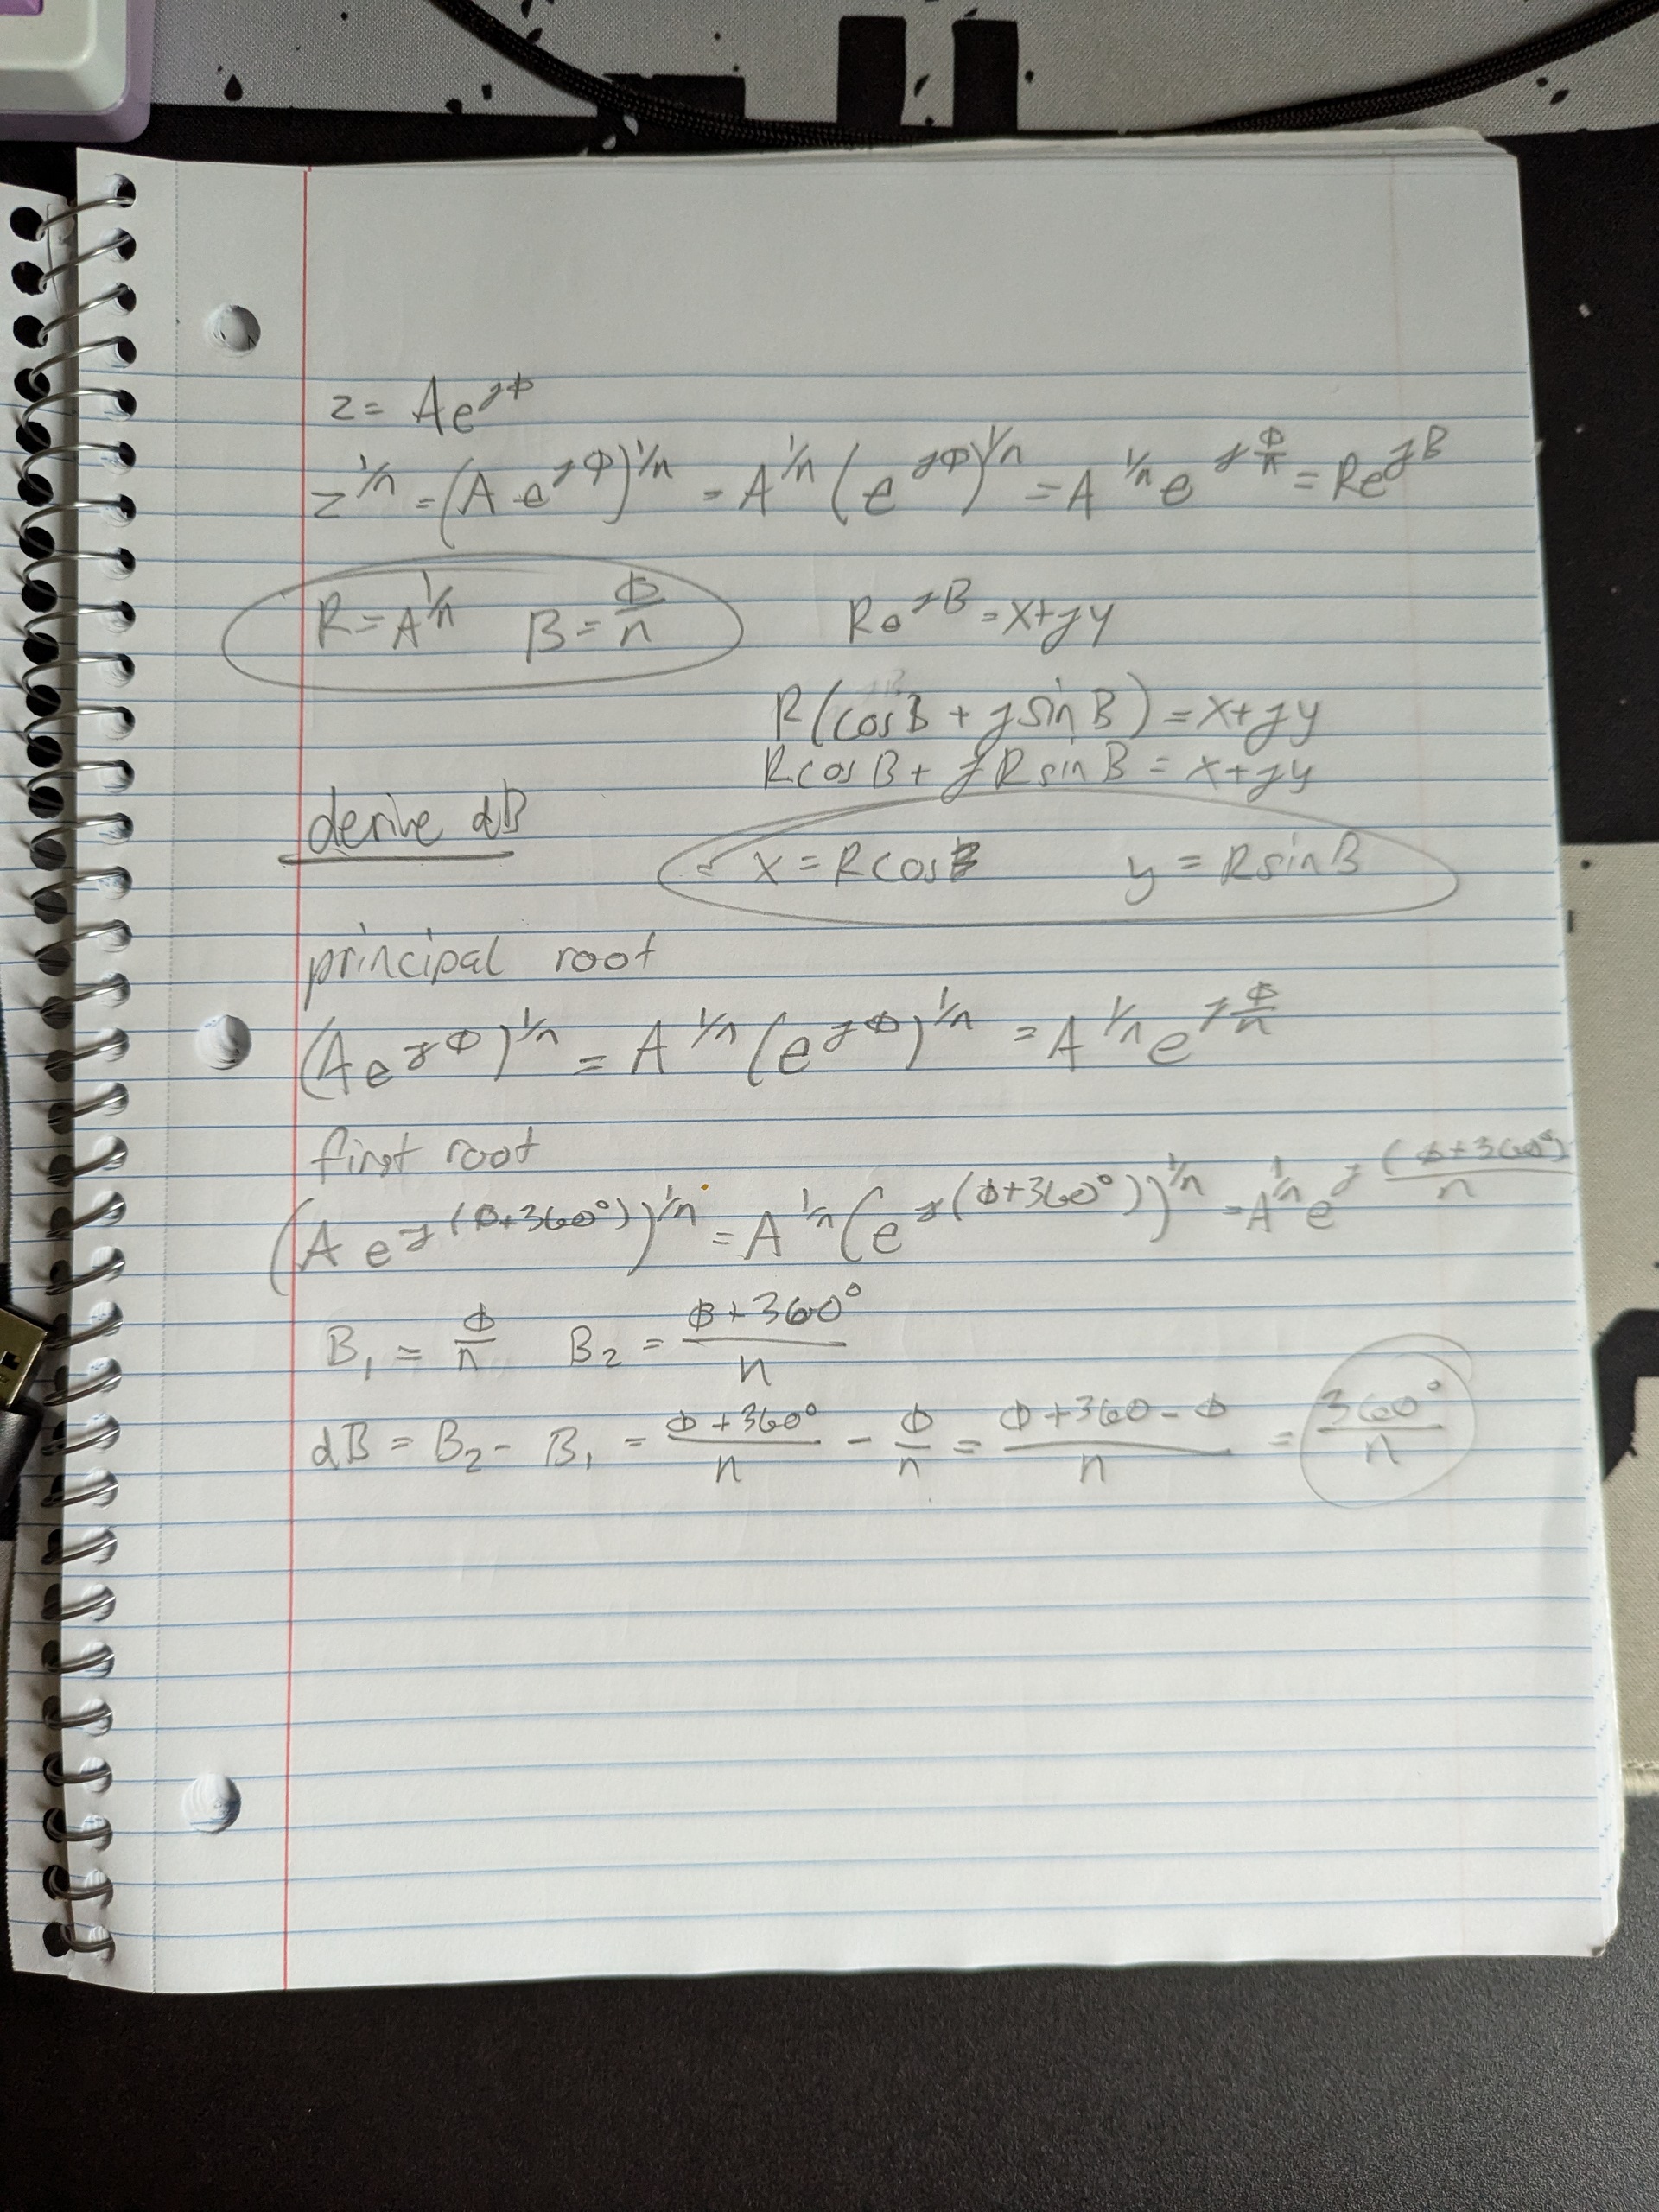 z = Ae^{jϕ}
z^{1/n} = (A e^{jϕ})^{1/n} = A^{1/n} (e^{jϕ})^{1/n} = A^{1/n} e^{j ϕ/n} = Re^{jB}
R = A^{1/n}   B = ϕ/n   Re^{jB} = x+jy
R(cosB + jsinB) = x+jy
RcosB + jRsinB = x+jy
derive dB
x = RcosB   y = RsinB
principal root
(Ae^{jϕ})^{1/n} = A^{1/n} (e^{jϕ})^{1/n} = A^{1/n} e^{j ϕ/n}
first root
(A e^{j(ϕ+360°)})^{1/n} = A^{1/n} (e^{j(ϕ+360°)})^{1/n} = A^{1/n} e^{j (ϕ+360°)/n}
B₁ = ϕ/n   B₂ = (ϕ+360°)/n
dB = B₂ - B₁ = (ϕ+360°)/n - ϕ/n = (ϕ+360-ϕ)/n = 360°/n